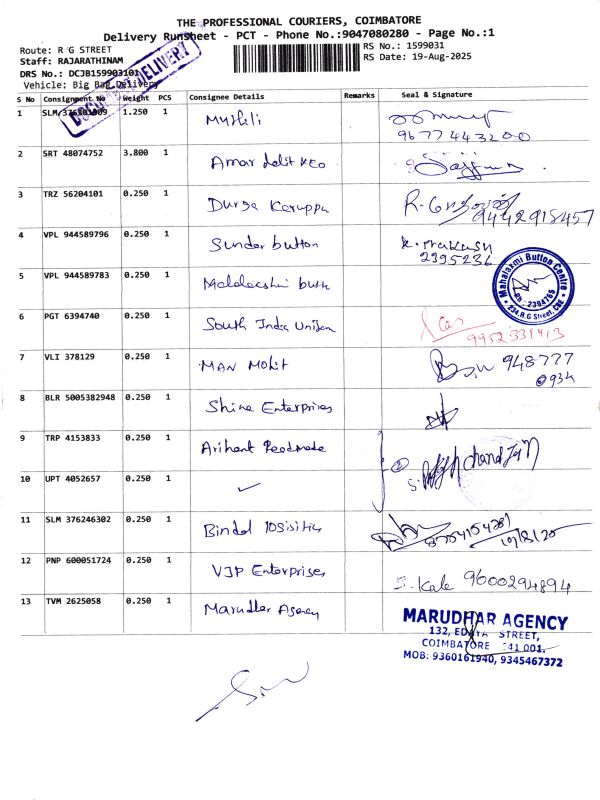 THE PROFESSIONAL COURIERS, COIMBATORE
Delivery Runsheet - PCT - Phone No.:9047080280 - Page No.:1
Route: R G STREET
RS No.: 1599031
Staff: RAJARATHINAM
RS Date: 19-Aug-2025
DRS No.: DCJB159903101
Vehicle: Big Bag Delivery
DELIVERY
S No Consignment No Weight PCS Consignee Details Remarks Seal & Signature
1 1.250 1 Mytheli
9677443200
2 SRT 48074752 3.800 1 Amar
3 TRZ 56204101 0.250 1 Durga Karuppa R.
9442918457
4 VPL 944589796 0.250 1 Sunder button K. Prakash
2395236
5 VPL 944589783 0.250 1
Mahalaxmi Button Centre
Ph : 2394765
234, R.G Street, CBE
6 PGT 6394740 0.250 1 South India
9952331413
7 VLI 378129 0.250 1 MAN MOhit 948777
0934
8 BLR 5005382948 0.250 1 Shine Enterprises
9 TRP 4153833 0.250 1 Arihant Readmade
10 UPT 4052657 0.250 1 ✓
11 SLM 376246302 0.250 1 Bindal
19/8/25
12 PNP 600051724 0.250 1 VJP Enterprises S. Kale 9600294894
13 TVM 2625058 0.250 1 Marudher Agency
MARUDHAR AGENCY
132, EDAYA STREET,
COIMBATORE 641 001.
MOB: 9360161940, 9345467372